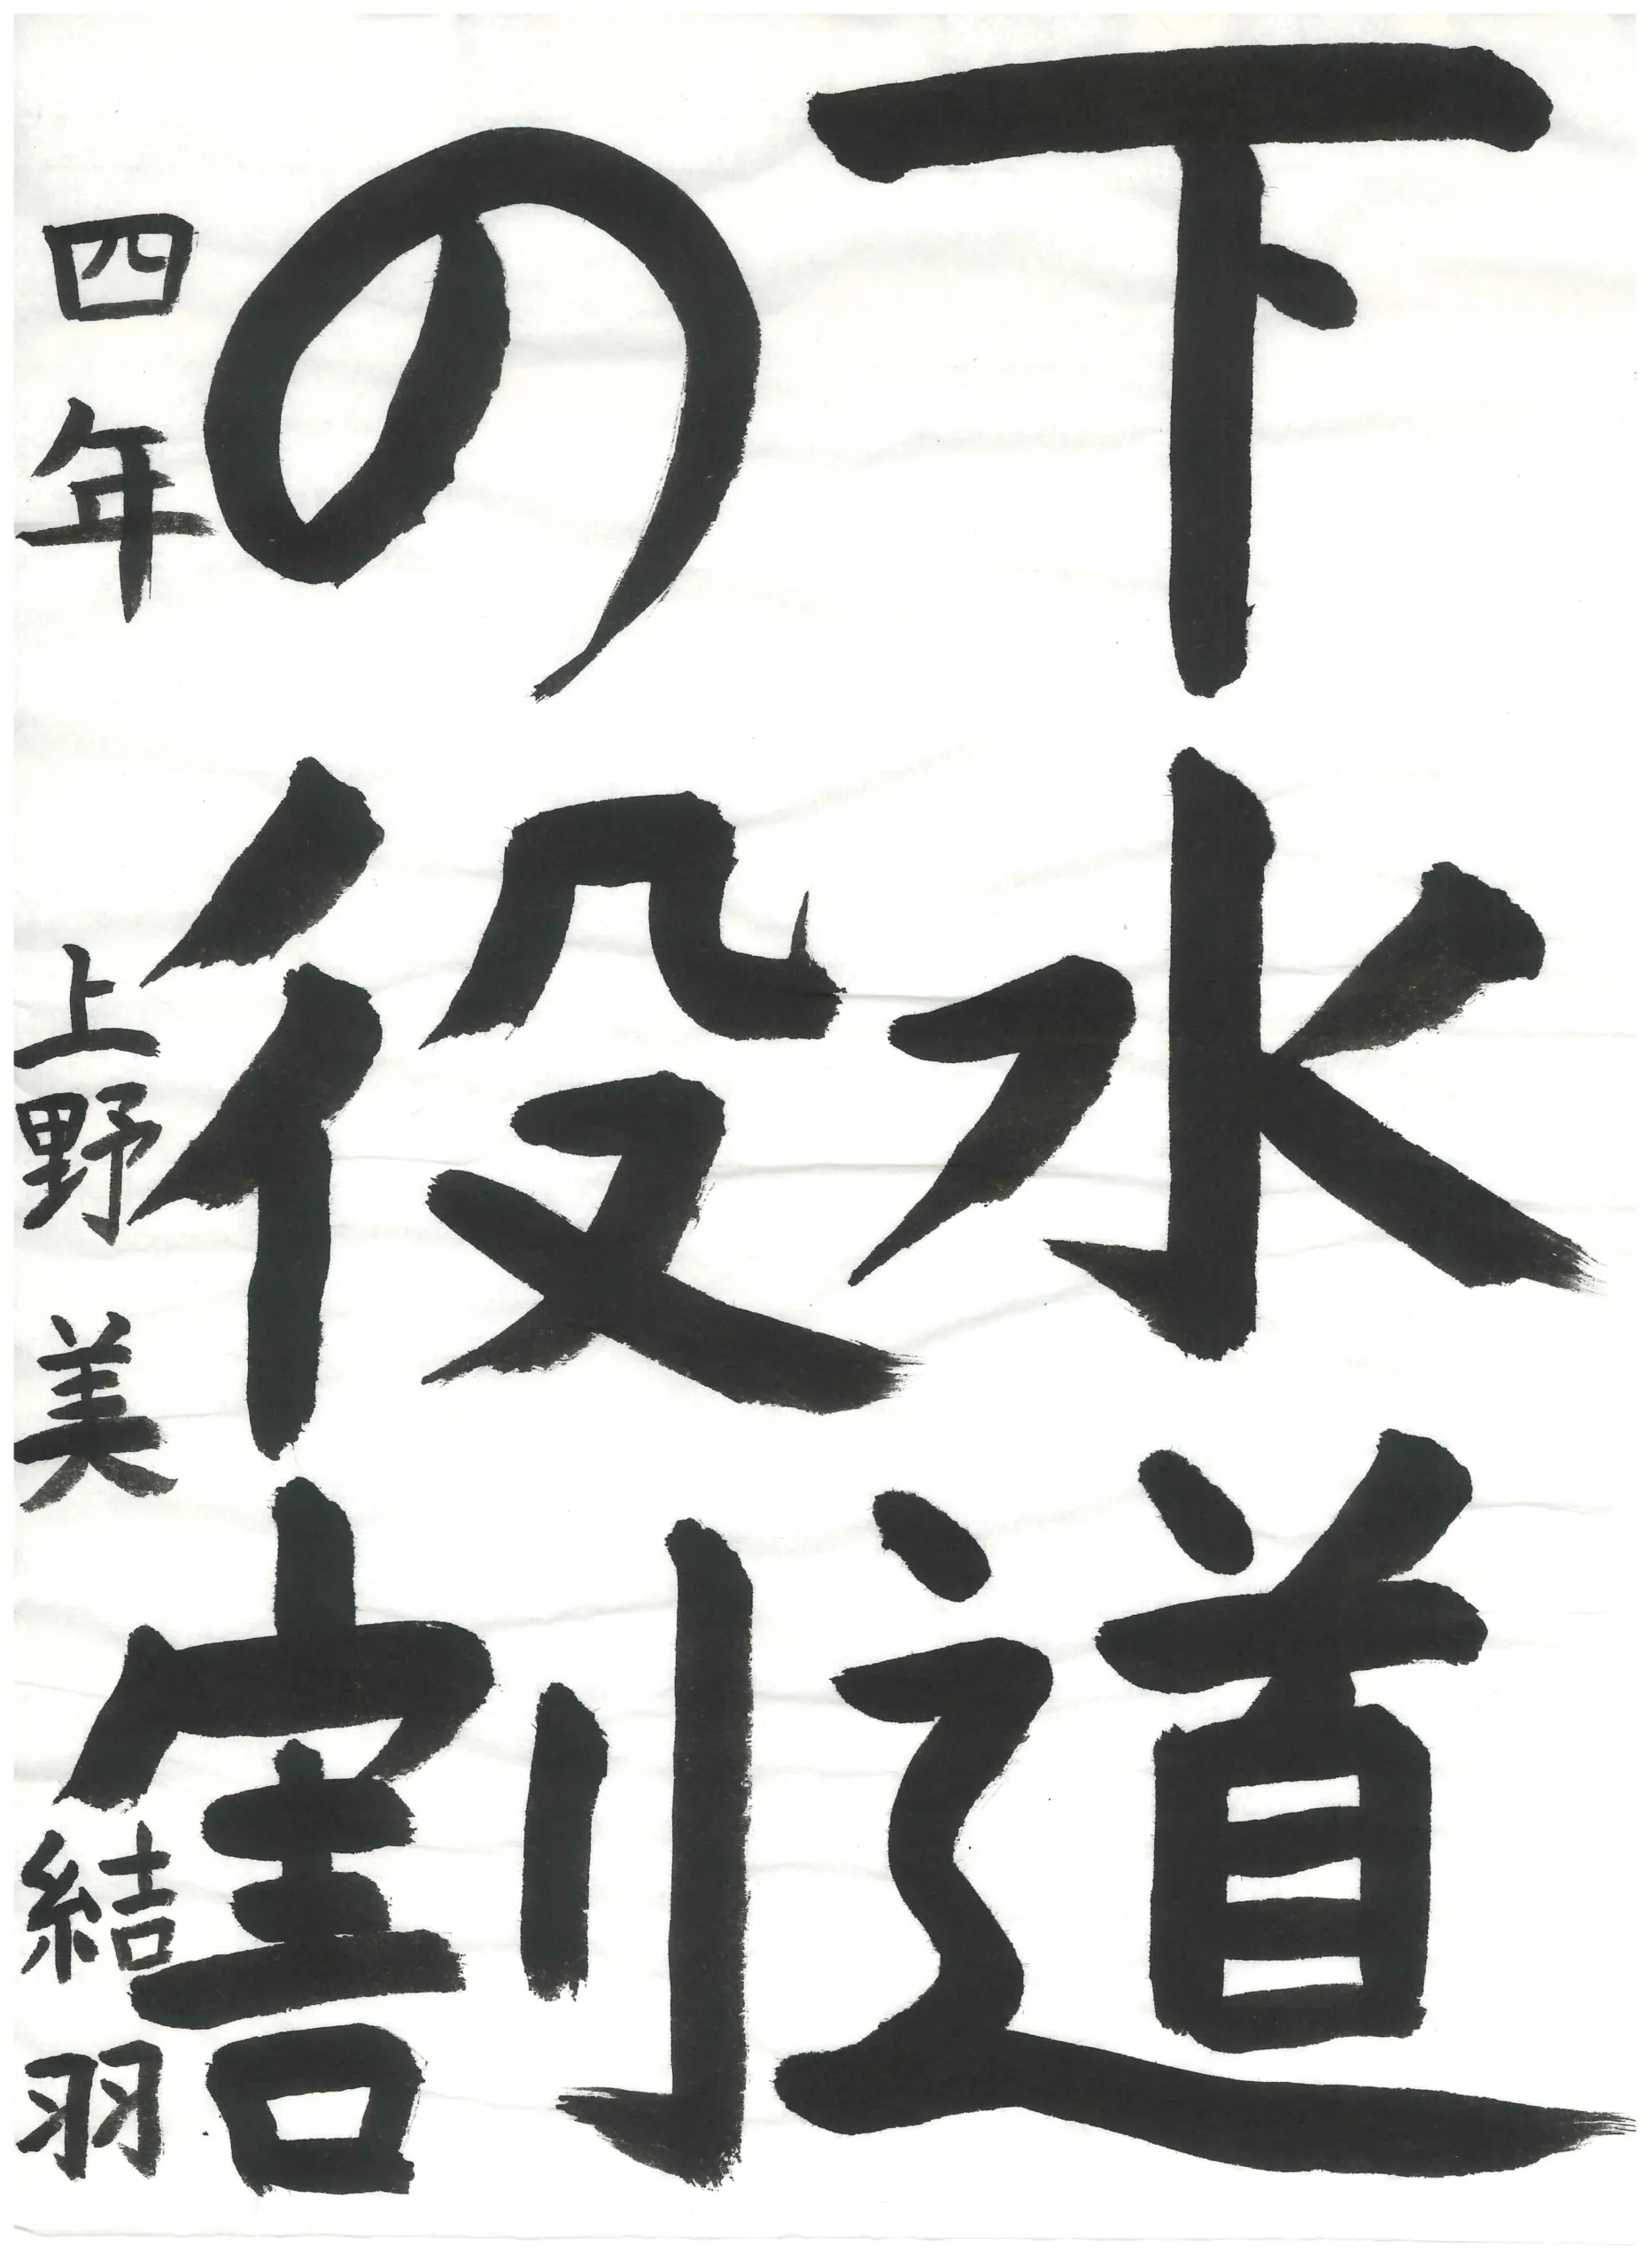 下水道
の役割
四年 上野 美結羽